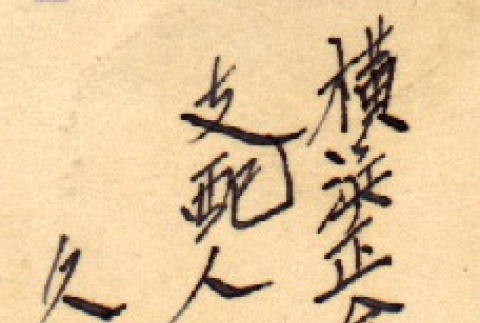 横浜正金
支配人
久